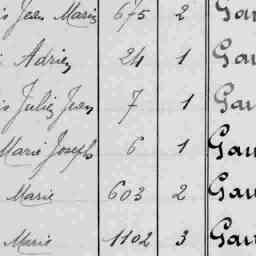 is Jean Marie 675 2 Gau
Adrien 24 1 Gau
is Julien Jean 7 1 Gau
Marie Joseph 6 1 Gau
Marie 603 2 Gau
Marie 1102 3 Gau